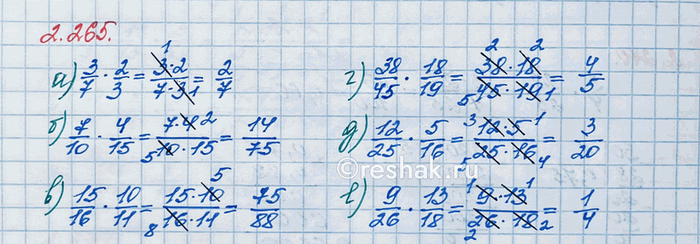 2.265.
а) 3/7 · 2/3 = 3·2/7·3 = 2/7
б) 7/10 · 4/15 = 7·4/10·15 = 14/75
в) 15/16 · 10/11 = 15·10/16·11 = 75/88
г) 38/45 · 18/19 = 38·18/45·19 = 4/5
д) 12/25 · 5/16 = 12·5/25·16 = 3/20
е) 9/26 · 13/18 = 9·13/26·18 = 1/4
©reshak.ru